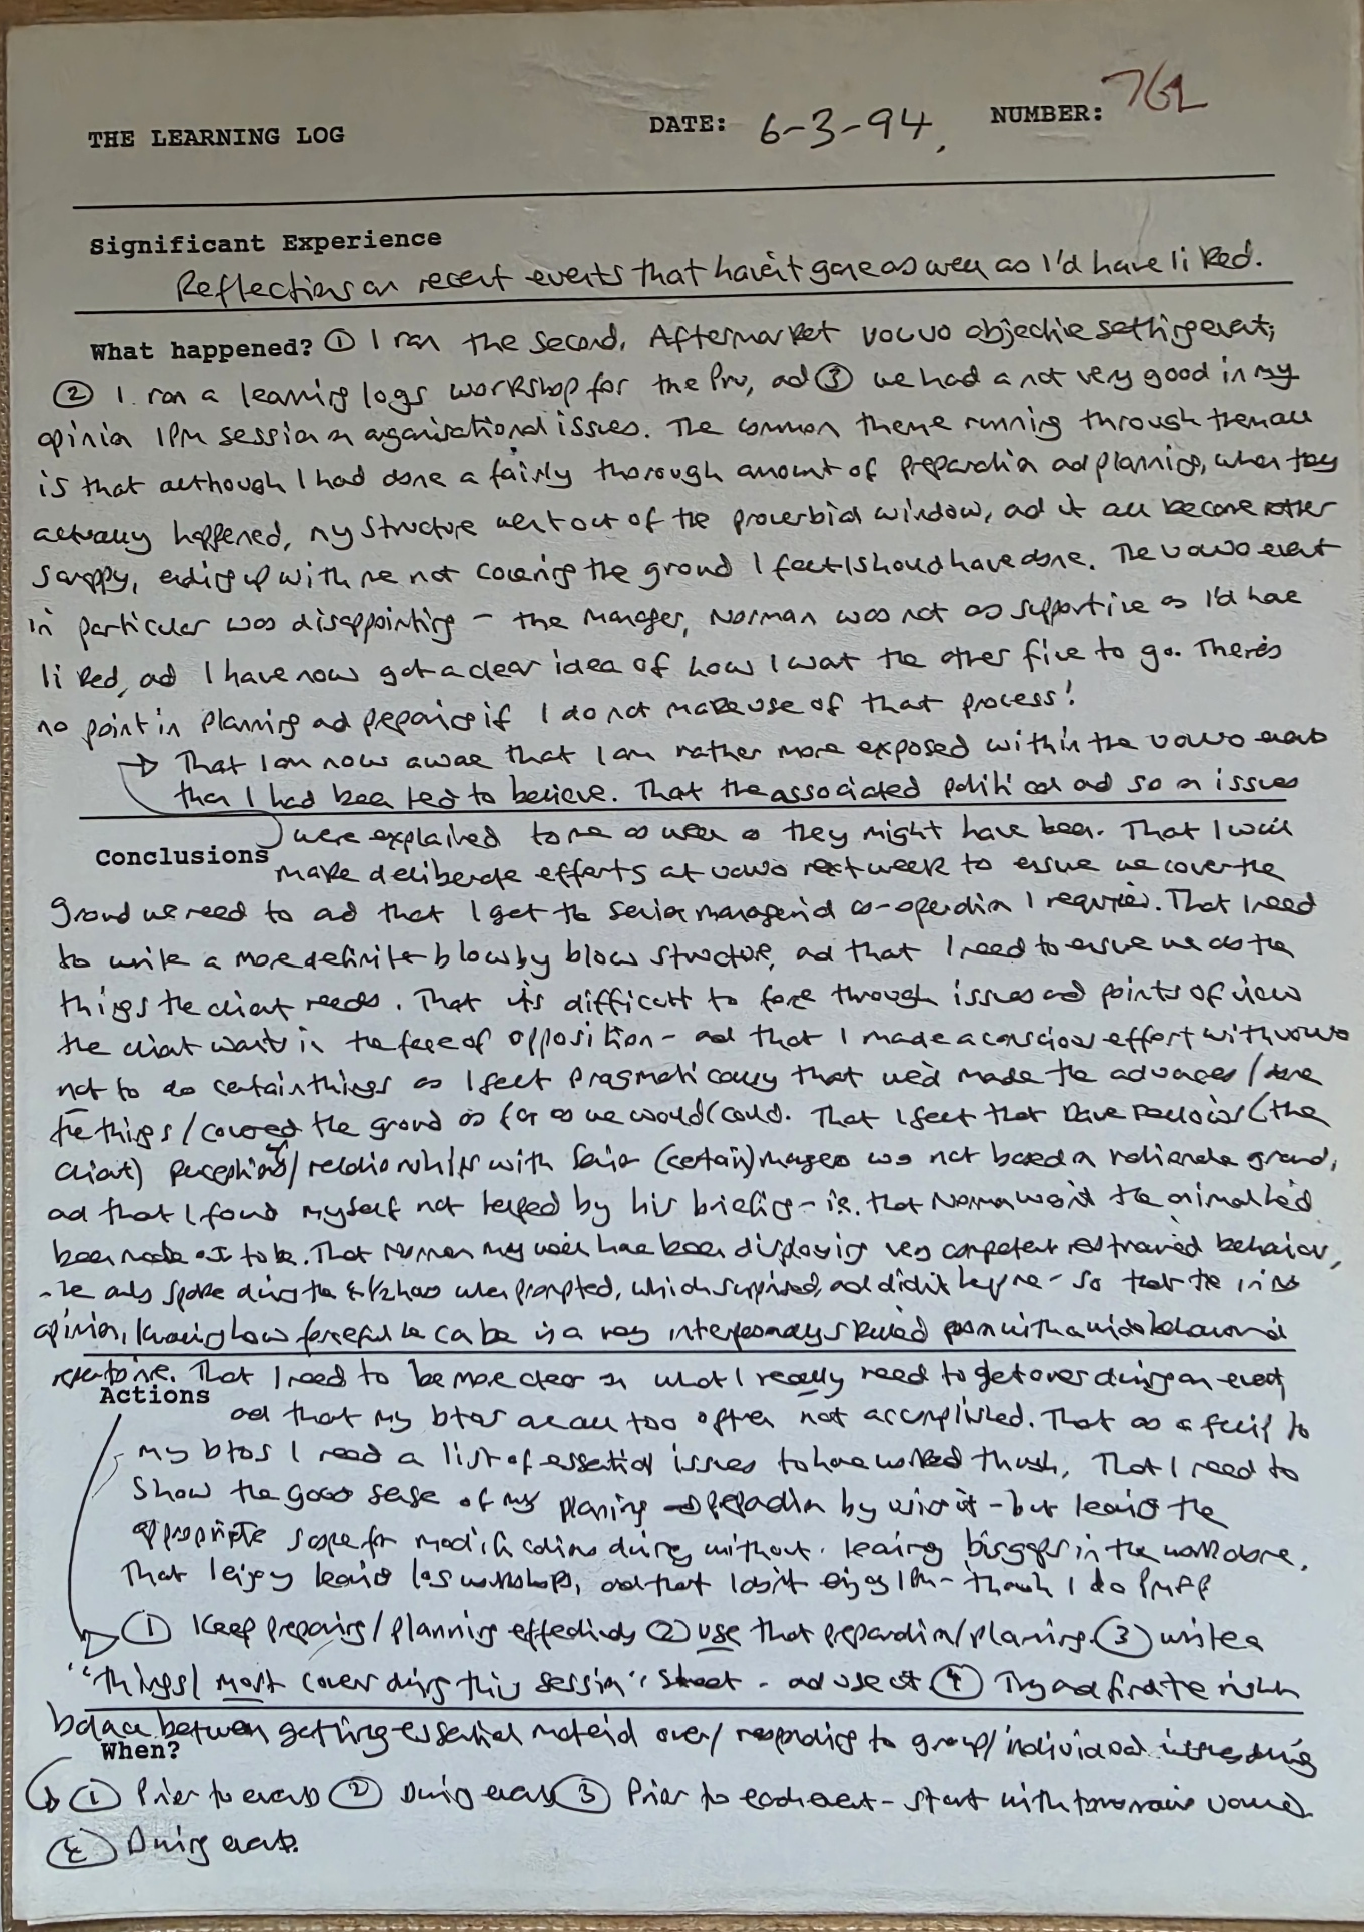 THE LEARNING LOG DATE: 6-3-94, NUMBER: 761
Significant Experience
Reflections on recent events that haven't gone as well as I'd have liked.
What happened? ① I ran the second, Aftermarket Volvo objective setting event;
② I ran a learning logs workshop for the Pru, and ③ we had a not very good in my
opinion IPM session on organisational issues. The common theme running through them all
is that although I had done a fairly thorough amount of preparation and planning, when they
actually happened, my structure went out of the proverbial window, and it all became rather
scrappy, ending up with me not covering the ground I feel I should have done. The Volvo event
in particular was disappointing - the manager, Norman was not as supportive as I'd have
liked, and I have now got a clear idea of how I want the other five to go. There's
no point in planning and preparing if I do not make use of that process!
→ That I am now aware that I am rather more exposed within the Volvo events
than I had been led to believe. That the associated political and so on issues
were explained to me as well as they might have been. That I will
Conclusions make deliberate efforts at Volvo next week to ensure we cover the
ground we need to and that I get the senior managerial co-operation I require. That I need
to write a more definite blow by blow structure, and that I need to ensure we do the
things the client needs. That it's difficult to force through issues and points of view
the client wants in the face of opposition - and that I made a conscious effort with Volvo
not to do certain things as I felt pragmatically that we'd made the advances / done
the things / covered the ground as far as we would/could. That I feel that Dave (the
client) perceptions / relationships with senior (certain) manages was not based on rational ground,
and that I found myself not helped by his briefing - ie. that Norman wasn't the animal he'd
been made out to be. That Norman may well have been displaying very competent restrained behaviour,
he only spoke during the 1/2 hours when prompted, which surprised, and didn't help me - so that he in his
opinion, knowing how forceful he can be is a very interpersonally skilled person with a wide behavioural
repertoire. That I need to be more clear on what I really need to get over during an event,
Actions
and that my btos are all too often not accomplished. That as a foil to
my btos I need a list of essential issues to have worked through, That I need to
show the good sense of my planning → preparation by using it - but leaving the
appropriate scope for modifications during without leaving big gaps in the work done.
That I enjoy learning logs workshops, and that I don't enjoy IPM - though I do PMFP
① Keep preparing / planning effectively ② use that preparation / planning. ③ write a
"things I must cover during this session" sheet - and use it ④ Try and find the right
balance between getting essential material over / responding to group / individual issues during
When?
① Prior to events ② During events ③ Prior to each event - start with tomorrow's Volvo
④ During events.